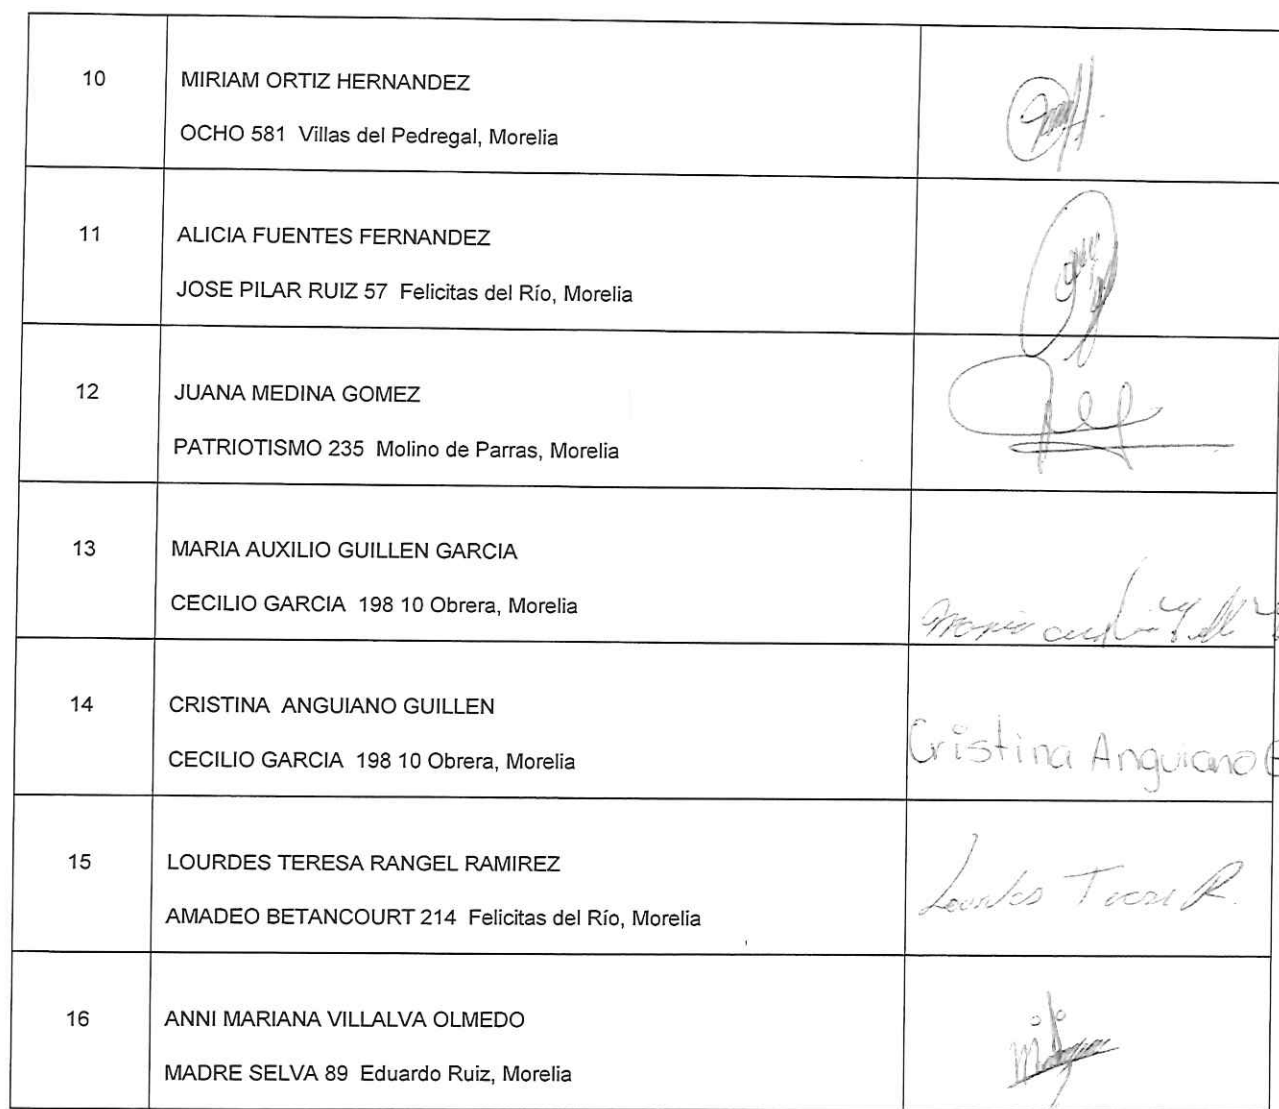 10
MIRIAM ORTIZ HERNANDEZ
OCHO 581 Villas del Pedregal, Morelia
11
ALICIA FUENTES FERNANDEZ
JOSE PILAR RUIZ 57 Felicitas del Río, Morelia
12
JUANA MEDINA GOMEZ
PATRIOTISMO 235 Molino de Parras, Morelia
13
MARIA AUXILIO GUILLEN GARCIA
CECILIO GARCIA 198 10 Obrera, Morelia
14
CRISTINA ANGUIANO GUILLEN
CECILIO GARCIA 198 10 Obrera, Morelia
Cristina Anguiano G
15
LOURDES TERESA RANGEL RAMIREZ
AMADEO BETANCOURT 214 Felicitas del Río, Morelia
Lourdes R.
16
ANNI MARIANA VILLALVA OLMEDO
MADRE SELVA 89 Eduardo Ruiz, Morelia